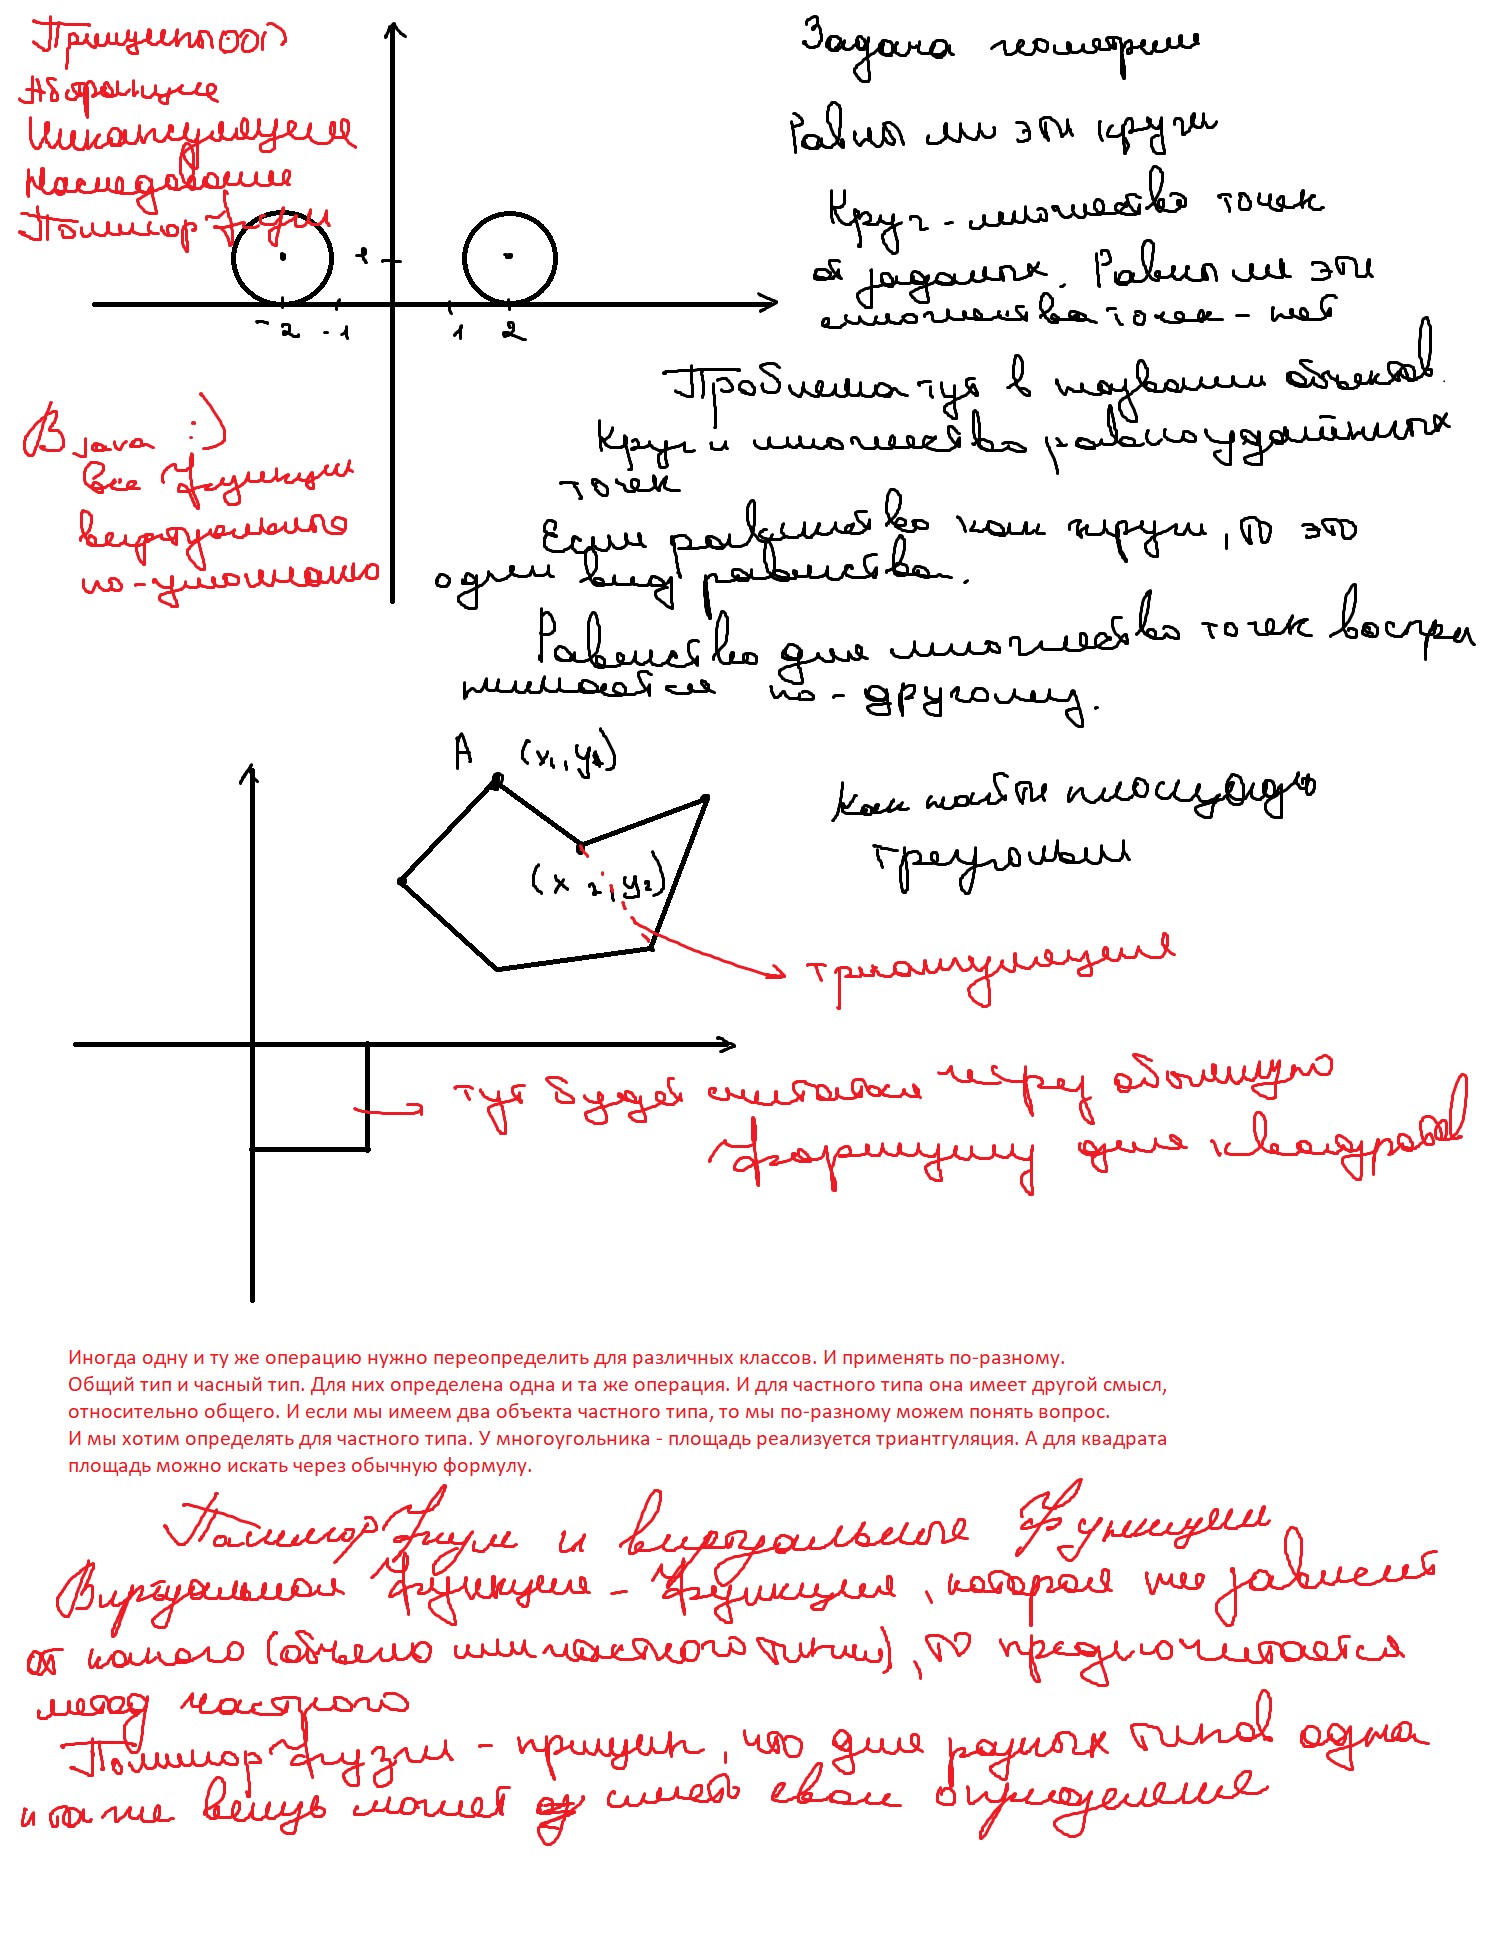 Принципы ООП
Абстракция
Инкапсуляция
Наследование
Полиморфизм
Задача геометрии
Равны ли эти круги
Круг - множество точек
Равны ли эти
множества точек - нет
1
-2 -1 1 2
Проблема тут в названии объектов.
Круг и множество равноудалённых
точек
Если равенство как круги, то это
один вид равенства.
Равенство для множества точек воспри
нимается по-другому.
В java :)
все функции
виртуальные
по-умолчанию
A (x₁, y₁)
(x₂, y₂)
Как найти площадь
триангуляция
тут будет считаться через обычную
формулу для квадратов
Иногда одну и ту же операцию нужно переопределить для различных классов. И применять по-разному.
Общий тип и часный тип. Для них определена одна и та же операция. И для частного типа она имеет другой смысл,
относительно общего. И если мы имеем два объекта частного типа, то мы по-разному можем понять вопрос.
И мы хотим определять для частного типа. У многоугольника - площадь реализуется триантгуляция. А для квадрата
площадь можно искать через обычную формулу.
Полиморфизм и виртуальные функции
Виртуальная функция - функция, которая не зависит
от какого (общего или частного типа), то предпочитается
метод частного
Полиморфизм - принцип, что для разных типов одна
и та же вещь может иметь свои определения